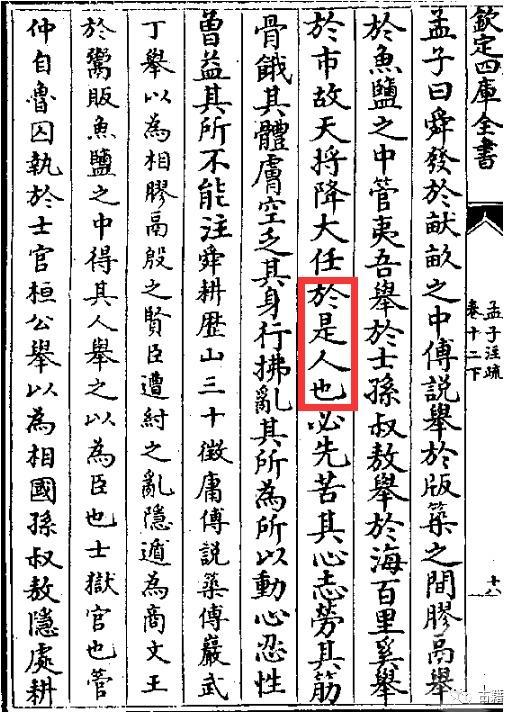 欽定四庫全書
孟子注疏
卷十二下
十八
孟子曰舜發於畎畝之中傅説舉於版築之間膠鬲舉
於魚鹽之中管夷吾舉於士孫叔敖舉於海百里奚舉
於市故天將降大任於是人也必先苦其心志勞其筋
骨餓其體膚空乏其身行拂亂其所為所以動心忍性
曾益其所不能注舜耕歴山三十徴庸傅説築傅巖武
丁舉以為相膠鬲殷之賢臣遭紂之亂隱遁為商文王
於鬻販魚鹽之中得其人舉之以為臣也士獄官也管
仲自魯囚執於士官桓公舉以為相國孫叔敖隱處耕
古籍